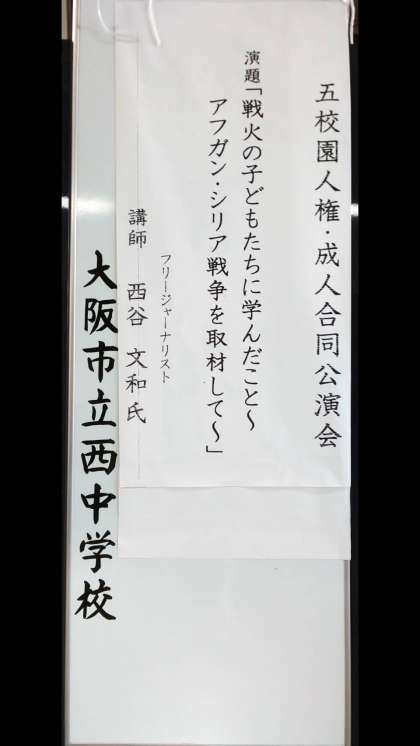 五校園人権・成人合同公演会
演題「戦火の子どもたちに学んだこと〜
アフガン・シリア戦争を取材して〜」
フリージャーナリスト
講師　西谷　文和氏
大阪市立西中学校